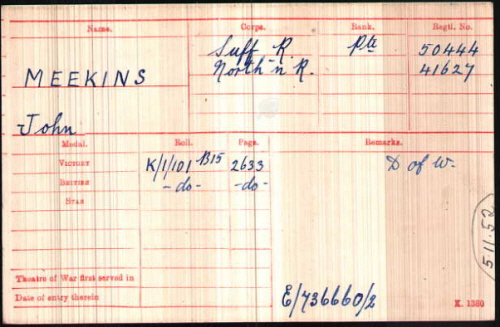 Name. Corps. Rank. Regtl. No.
Suff. R. Pte 50444
MEEKINS North'n R. 41627
John
Medal. Roll. Page. Remarks.
VICTORY K/1/101 B15 2633 D of W.
BRITISH -do- -do-
STAR
5.11.52
Theatre of War first served in
Date of entry therein E/736660/2 K. 1380